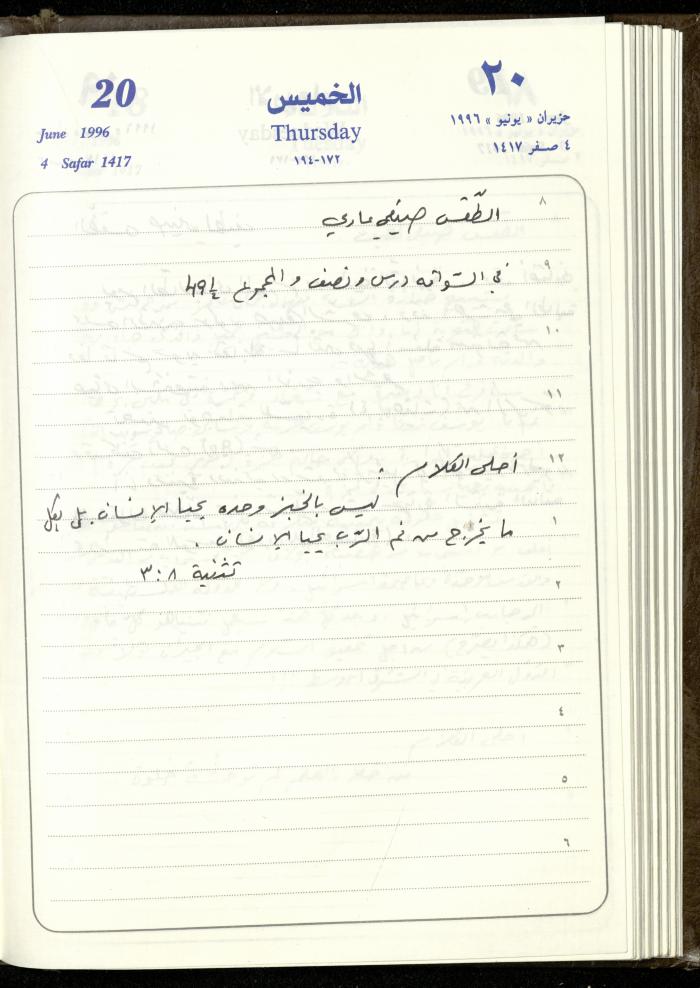 20 الخميس ٢٠
June 1996 Thursday حزيران « يونيو » ١٩٩٦
4 Safar 1417 ١٧٢-١٩٤ ٤ صفر ١٤١٧
٨ الطّقس صيفي عادي
٩ في السّواقه درس ونصف والمجموع 49½
١٠
١١
١٢ أحلى الكلام :
ليس بالخبز وحده يحيا الإنسان. بلى بكل
١ ما يخرج من فم الرّب يحيا الإنسان .
تثنية ٨ : ٣
٢
٣
٤
٥
٦